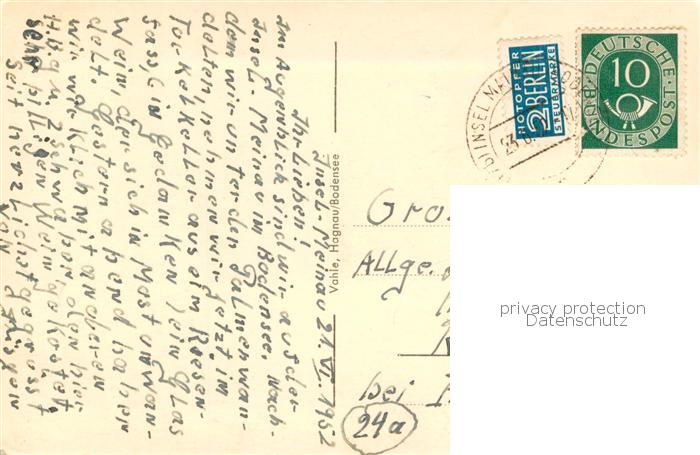 Insel-Meinau 21.VI.1952
Ihr Lieben!
Im Augenblick sind wir auf der
Insel-Meinau im Bodensee, nach-
dem wir unter den Palmen wan-
delten, nehmen wir jetzt im
Torkelkeller aus ein Riesen-
fass (in Gedanken) ein Glas
Wein, der sich in Most umwan-
delt. Gestern abend haben
wir wirklich mit anderen
H.B.g. u. 2 Schwaben den hier
sehr billigen Wein gekostet,
Seit herzlichst gegrüsst
von
Vahle, Hagnau/Bodensee
NOTOPFER
2 BERLIN
STEUERMARKE
DEUTSCHE
BUNDESPOST
10
INSEL MAINAU
23.6.
Gro
Allge.
bei
24a
privacy protection
Datenschutz